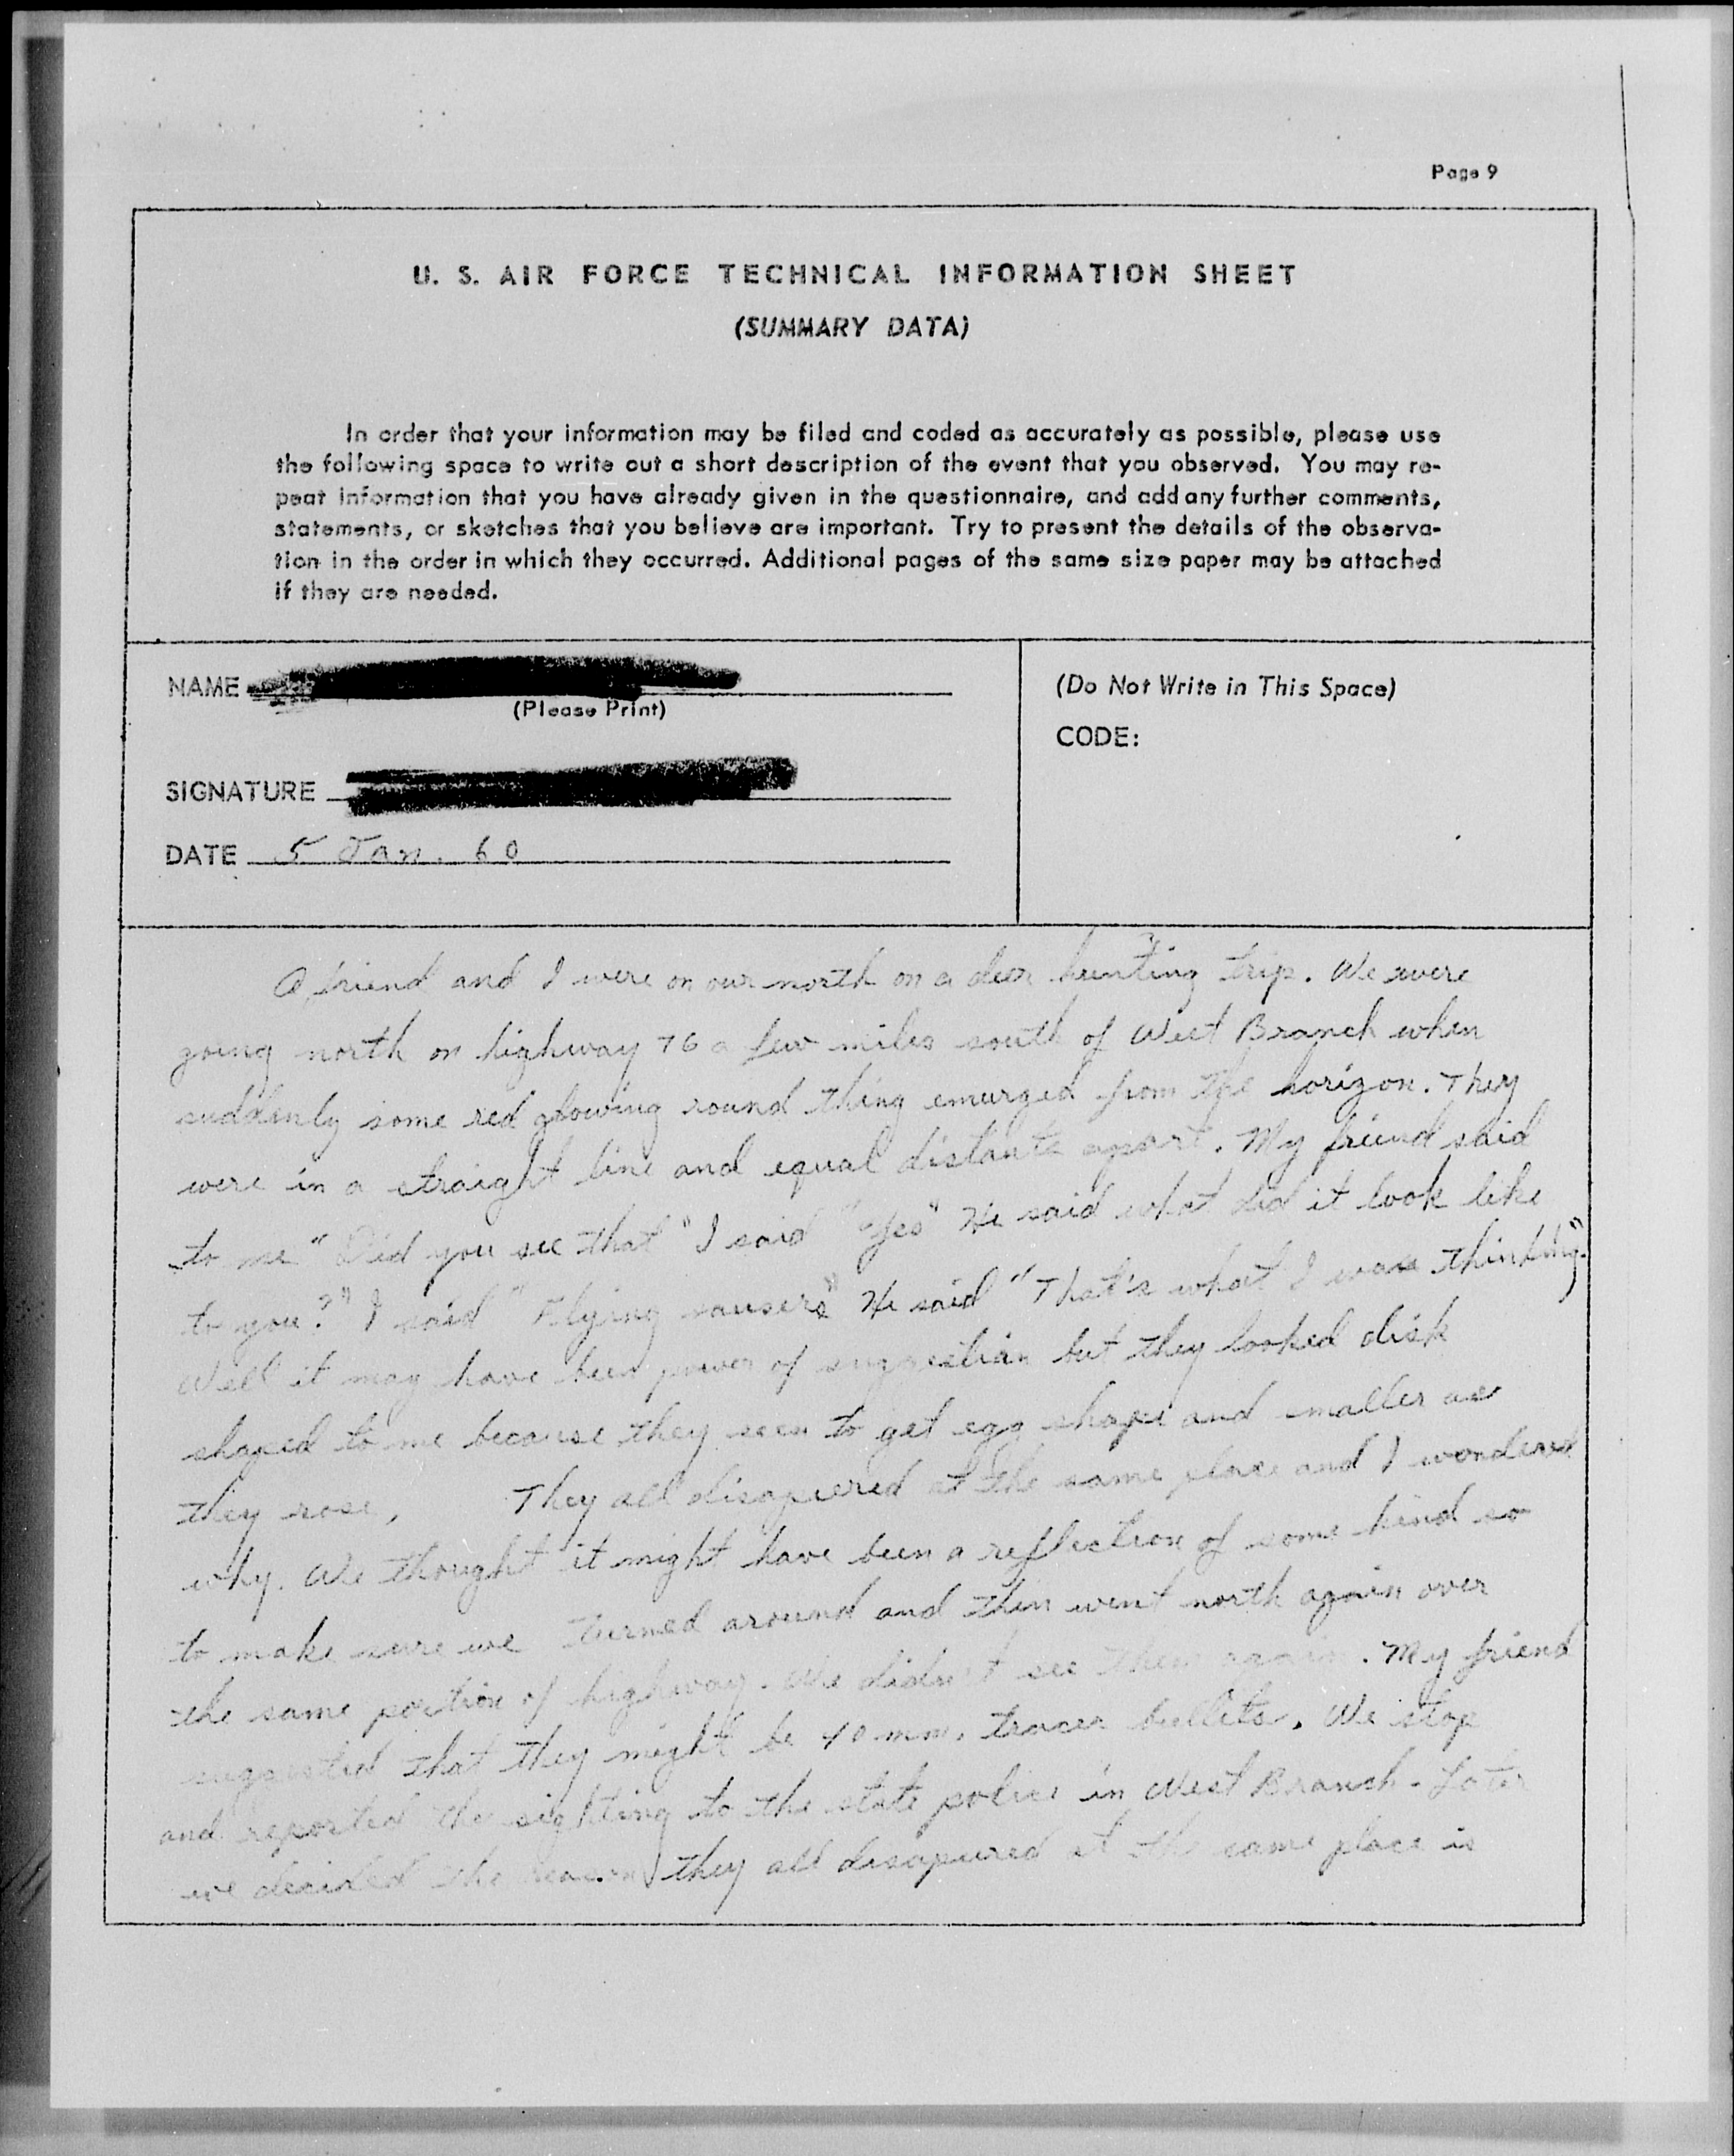 Page 9
U. S. AIR FORCE TECHNICAL INFORMATION SHEET
(SUMMARY DATA)
In order that your information may be filed and coded as accurately as possible, please use
the following space to write out a short description of the event that you observed. You may re-
peat information that you have already given in the questionnaire, and add any further comments,
statements, or sketches that you believe are important. Try to present the details of the observa-
tion in the order in which they occurred. Additional pages of the same size paper may be attached
if they are needed.
NAME
(Please Print)
SIGNATURE
DATE 5 Jan. 60
(Do Not Write in This Space)
CODE:
A friend and I were on our north on a deer hunting trip. We were
going north on highway 76 a few miles south of West Branch when
suddenly some red glowing round thing emurged from the horizon. They
were in a straight line and equal distants apart. My friend said
to me "Did you see that" I said "Yes" He said what did it look like
to you?" I said "Flying sausers" He said "That's what I was thinking."
Well it may have been power of suggestian but they looked disk
shaped to me because they seen to get egg shape and smaller as
they rose, They all disapeered at the same place and I wondered
why. We thought it might have been a reflection of some kind so
to make sure we turned around and then went north again over
the same portion of highway. We didn't see them again. My friend
suggested that they might be 40 mm. tracer bullets. We stop
and reported the sighting to the state police in West Branch. Later
we decided the reason they all disapeured at the same place is